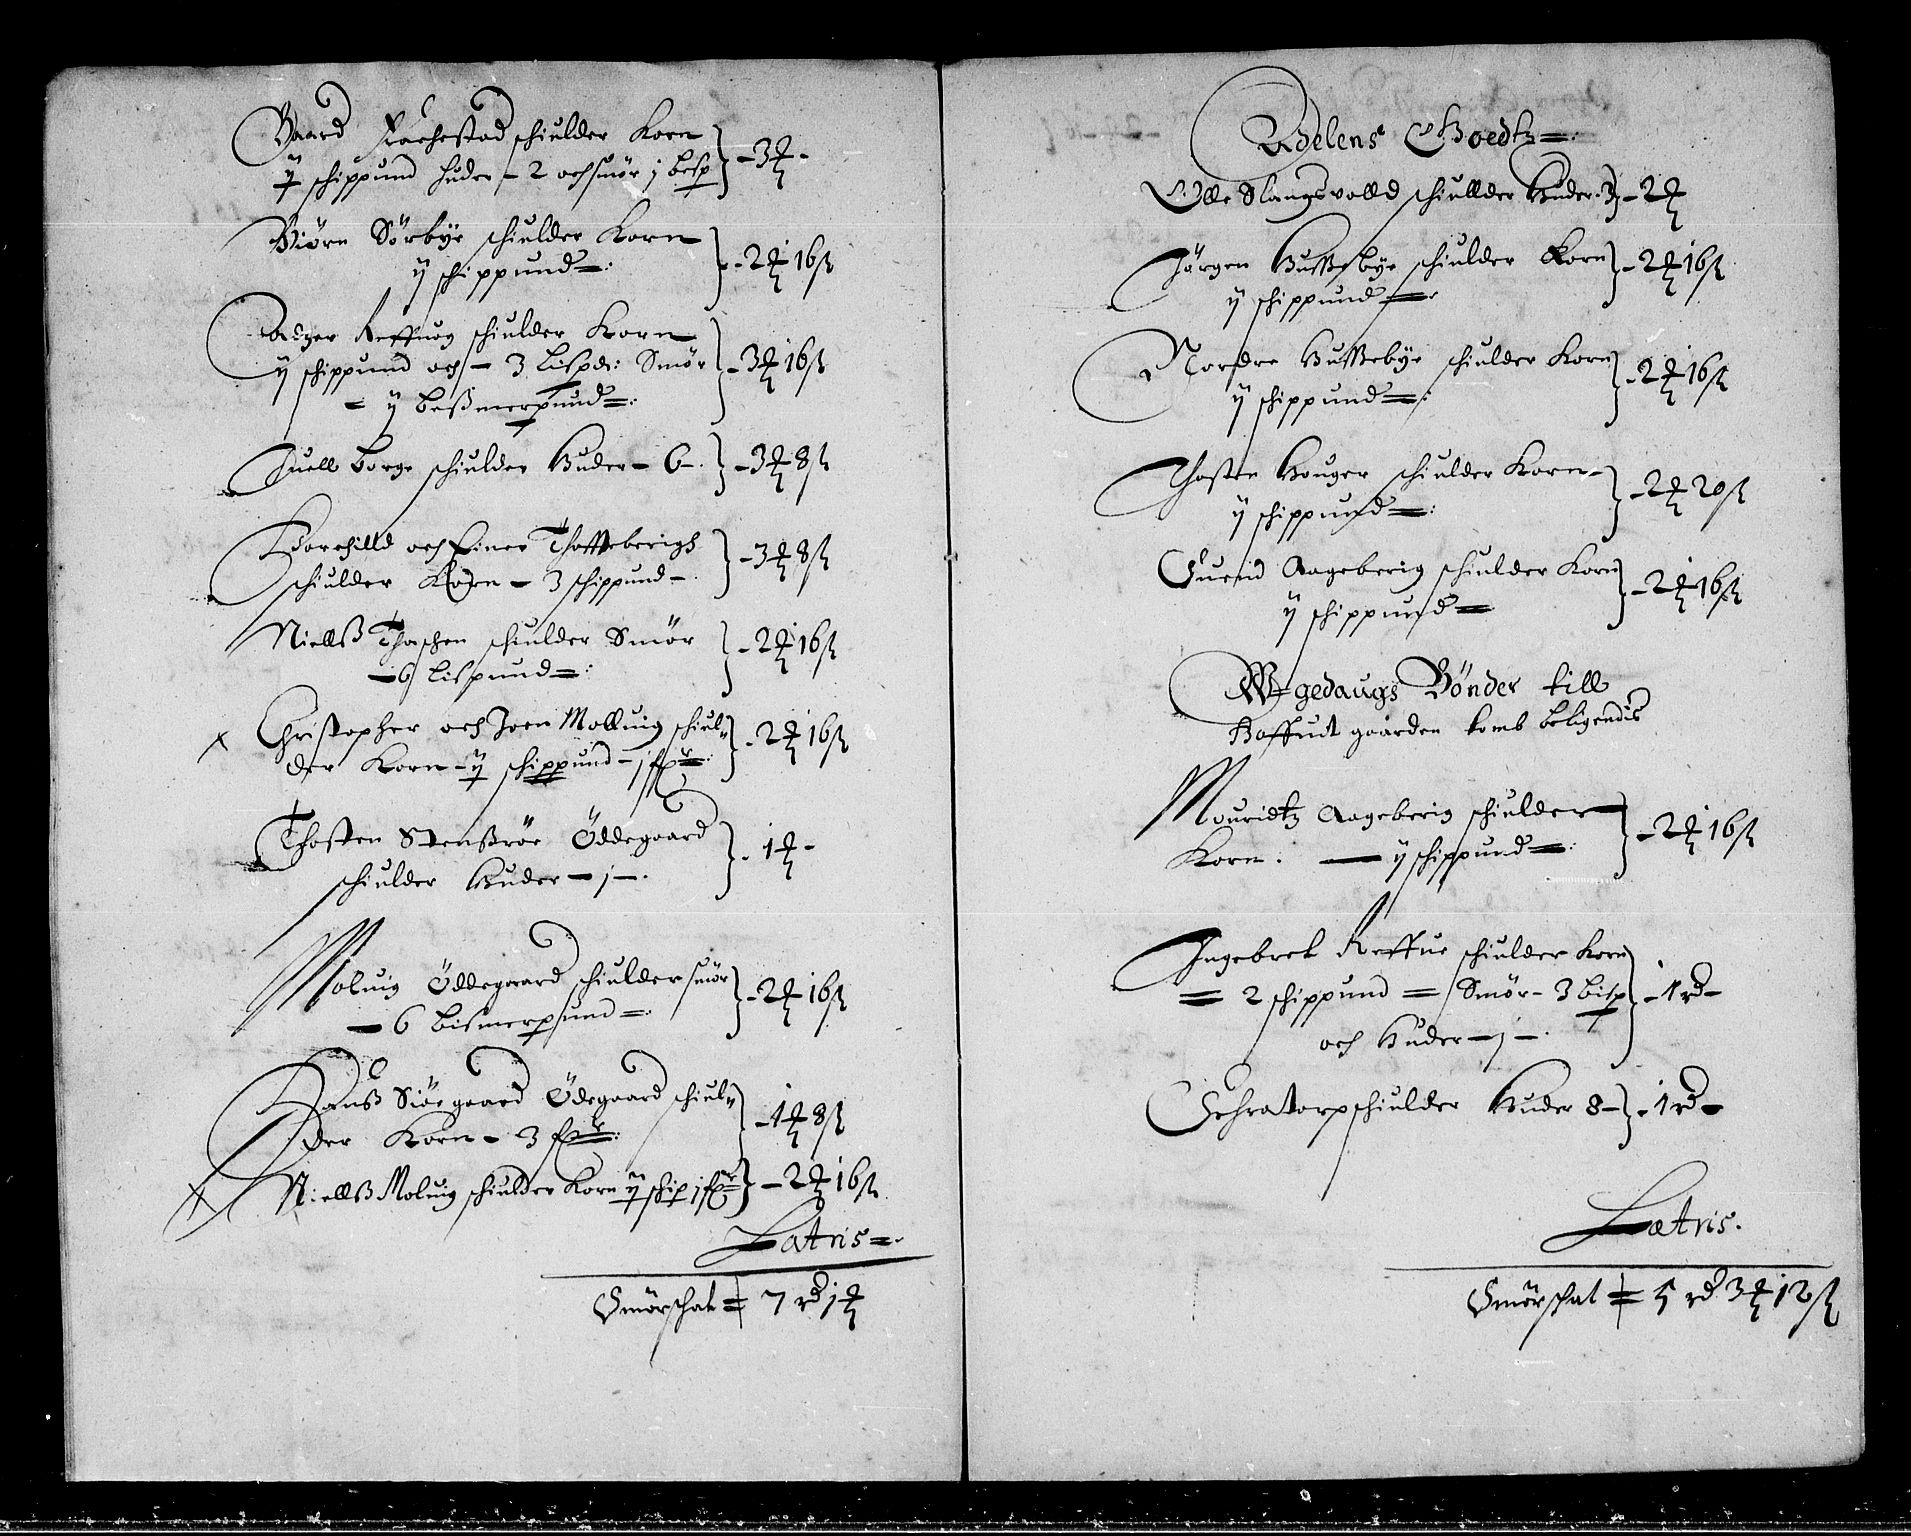 Baard Rachestad schiulder Korn
ÿ schippund huder - 2 och smör j besp } - 3 ort -
Biörn Sörbÿe schiulder Korn
ÿ schippund =: } - 2 ort 16 ß
Aszer Reffuog schiulder Korn
ÿ schippund och - 3 Lispd: Smör } - 3 ort 16 ß
- ÿ beßmerpund =:
Juell Borge schiulder Huder - 6 -. } - 3 ort 8 ß
Borchilld och Einer Thoffteberigh
schiulder Korn - 3 schippund -. } - 3 ort 8 ß
Niellß Thaschen schiulder Smör
- 6 Lispund =: } - 2 ort 16 ß
Christopher och Joen Molluig schiul-
der Korn - ÿ schippund - j fr: } - 2 ort 16 ß
Thosten Stenßröe Öddegaard
schiulder Huder - j -. } - 1 ort -
Moluig Öddegaard schiulder smör
- 6 bismerpund =. } - 2 ort 16 ß
Hanß Siöegaard Ödegaard schiul-
der Korn - 3 fr: } - 1 ort 8 ß
Niellß Moluig schiulder Korn ÿ schip j fr } - 2 ort 16 ß
Latris =.
Smörschat = 7 rd 1 ort
Adelens Goedtz =:
Olle Slangsvolld schiullder Huder 3 } - 2 ort
Jörgen Hußebÿe schiulder Korn
ÿ schippund =. } - 2 ort 16 ß
Nordre Hußebÿe schiulder Korn
ÿ schippund =: } - 2 ort 16 ß
Thosten Houger schiulder Korn -
ÿ schippund =: } - 2 ort 20 ß
Suend Aageberig schiulder Korn
ÿ schippund = } - 2 ort 16 ß
Wgedaugs Bönder till
Hoffuit gaarden som beligendis
Mouridtz Aageberig schiulder
Korn . - ÿ schippund =: } - 2 ort 16 ß
Ingebret Reffue schiulder Korn
= 2 schippund = Smör - 3 bisp } - 1 rd -
och Huder - j -.
Sehratorp schiulder Huder 8 - } - 1 rd -
Latris.
Smörschat = 5 rd 3 ort 12 ß